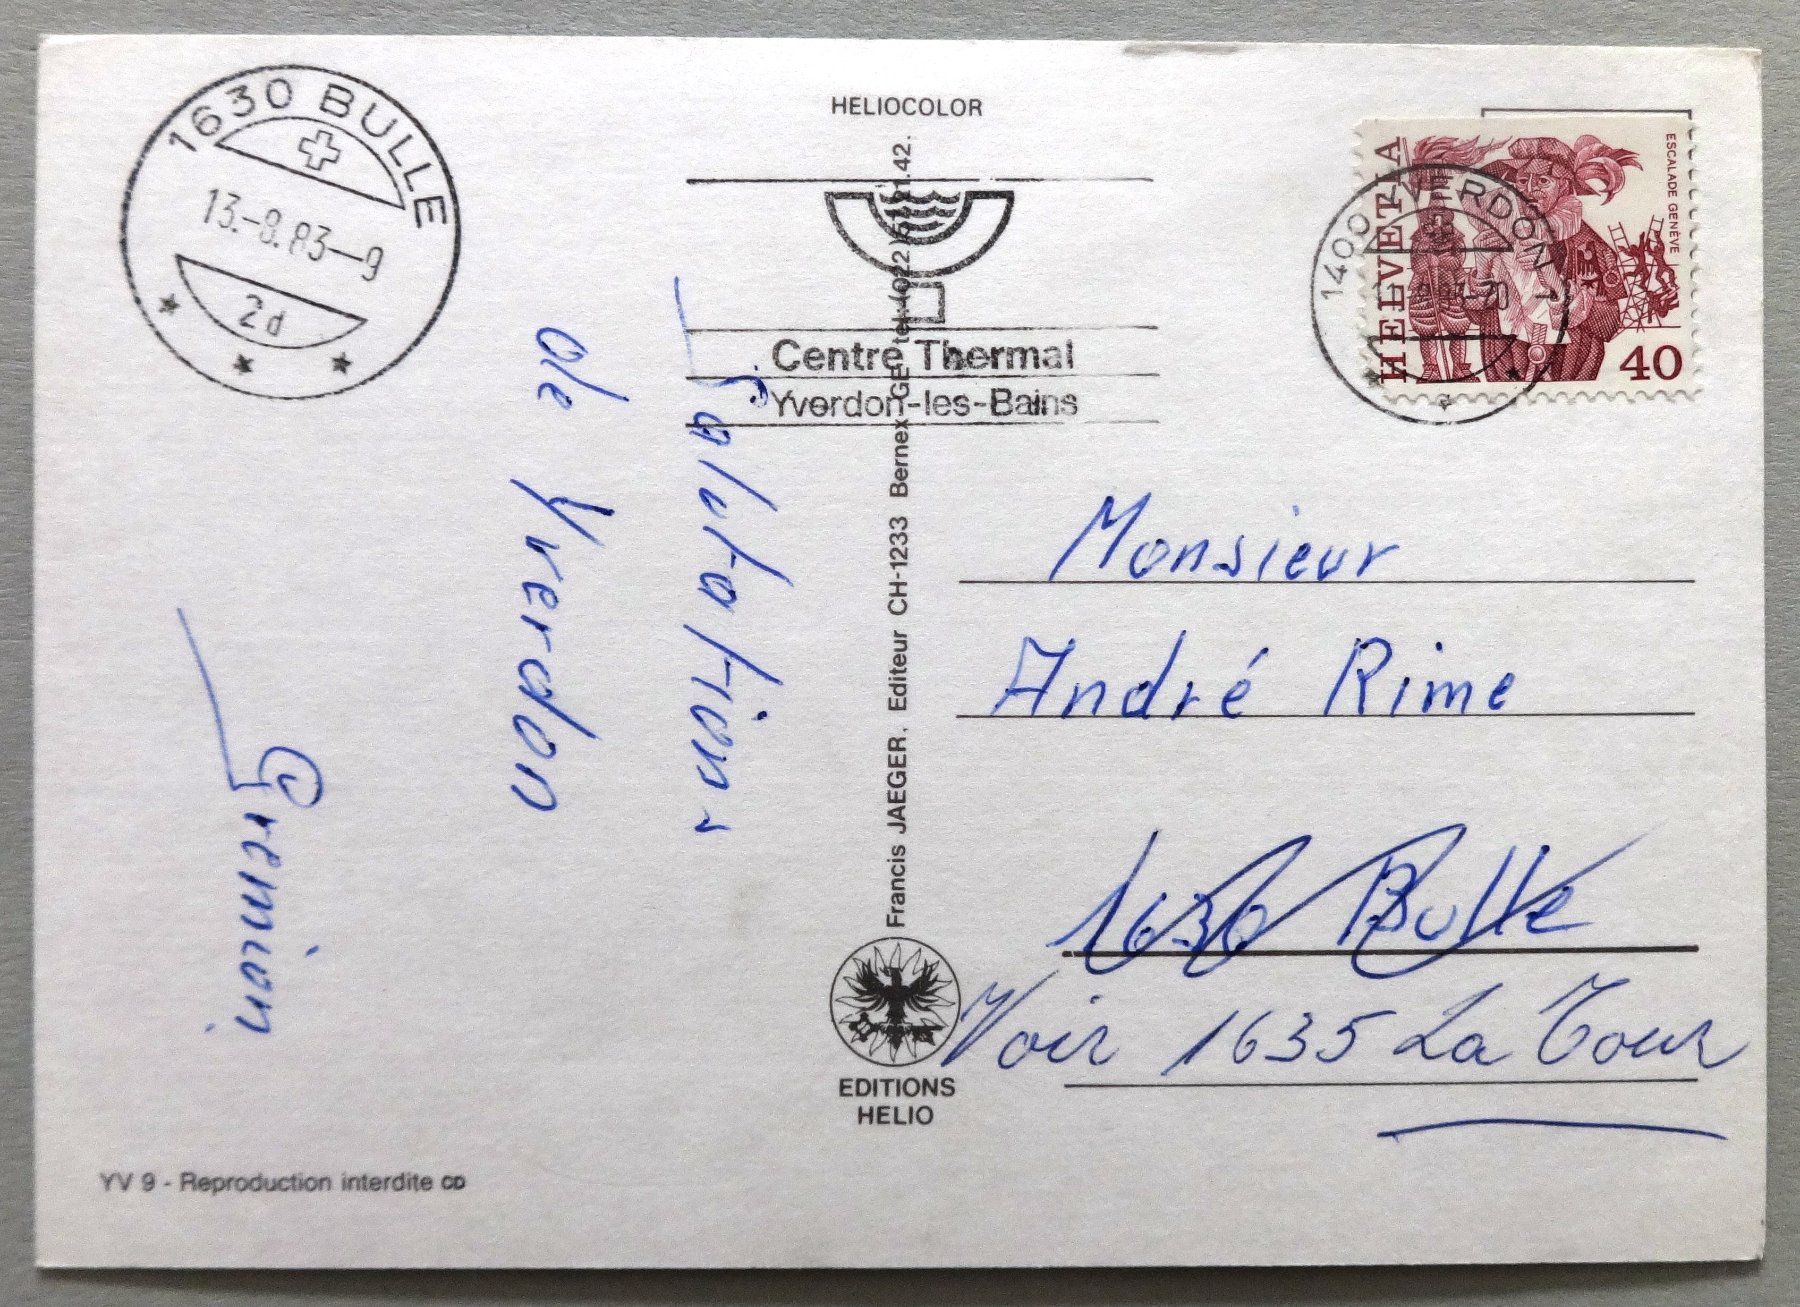 1630 BULLE
13.-8.83-9
2d
HELIOCOLOR
Centre Thermal
Yverdon-les-Bains
HELVETIA
ESCALADE GENÈVE
40
1400 YVERDON 1
Salutations
de Yverdon
Gremion
Francis JAEGER, Editeur CH-1233 Bernex GE tel. (022)
EDITIONS
HELIO
Monsieur
André Rime
1630 Bulle
Voir 1635 La Tour
YV 9 - Reproduction interdite